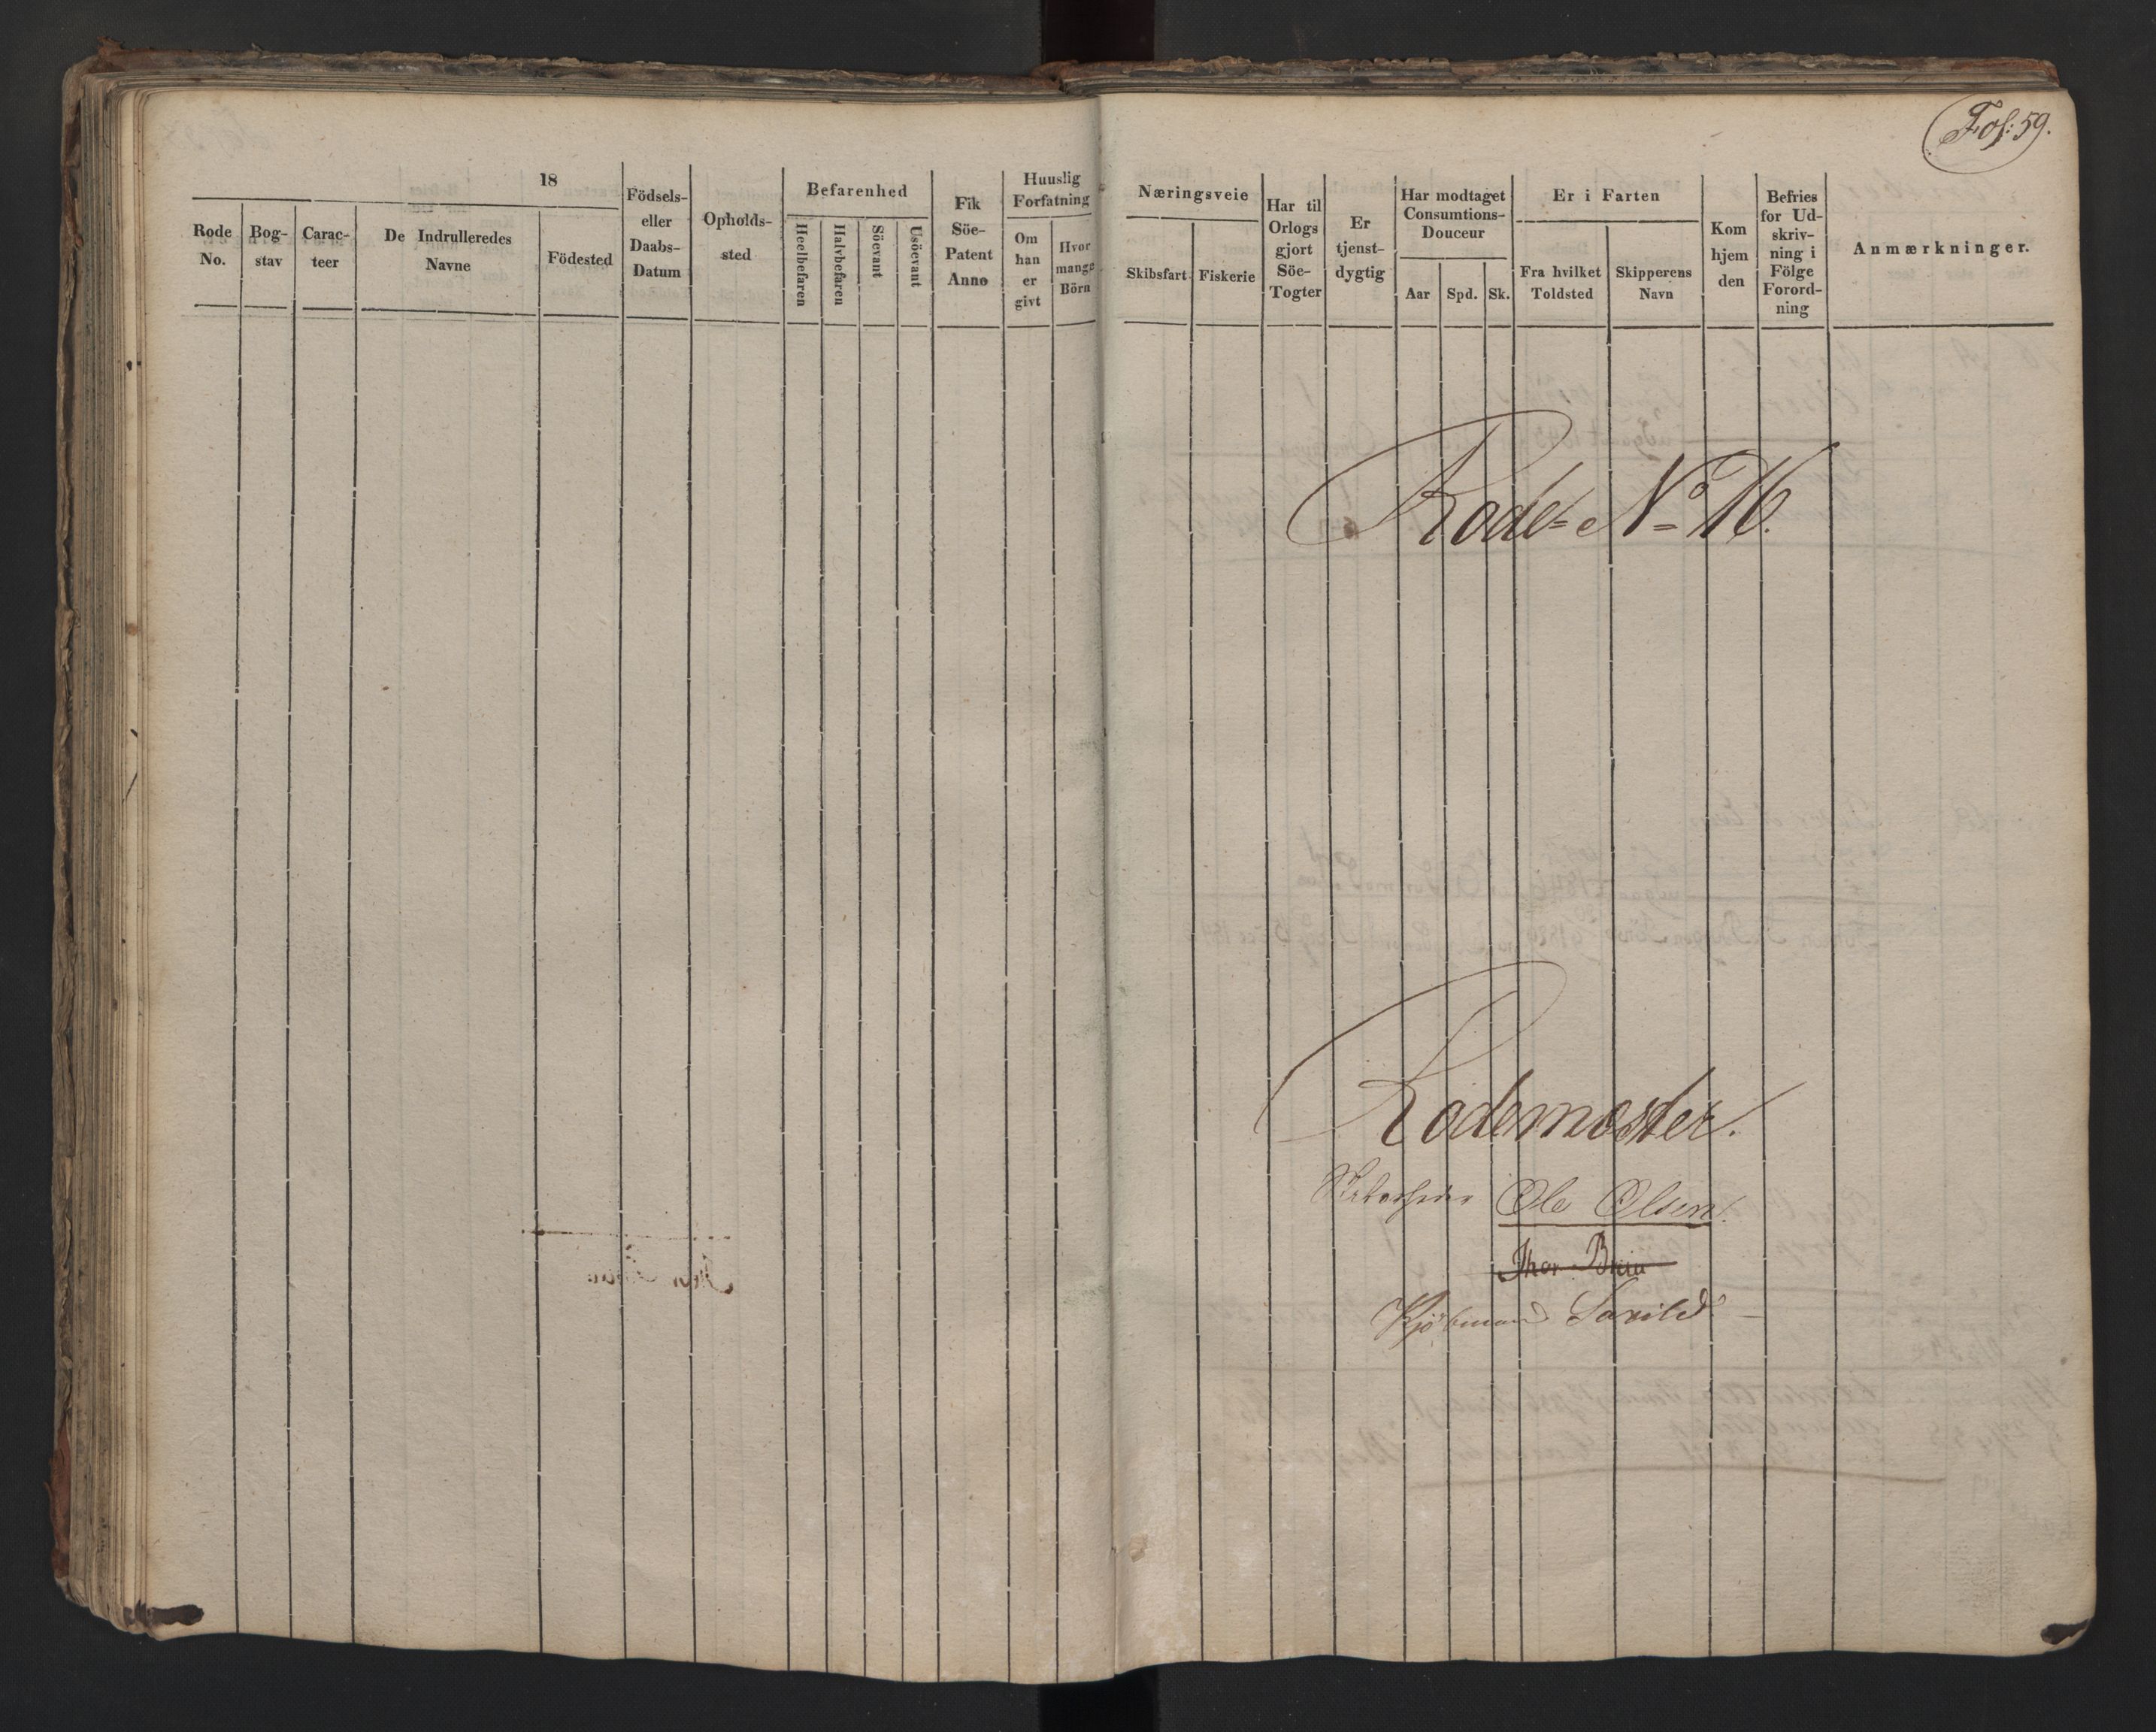 18
Rode No.
Bog-stav
Carac-teer
De Indrulleredes Navne
Födested
Födsels- eller Daabs-Datum
Opholds-sted
Befarenhed
Heelbefaren
Halvbefaren
Söevant
Usöevant
Fik Söe-Patent Anno
Huuslig Forfatning
Om han er givt
Hvor mange Börn
Fol: 59.
Næringsveie
Skibsfart
Fiskerie
Har til Orlogs gjort Söe-Togter
Er tjenst-dygtig
Har modtaget Consumtions-Douceur
Aar
Spd.
Sk.
Er i Farten
Fra hvilket Toldsted
Skipperens Navn
Kom hjem den
Befries for Ud-skriv-ning i Fölge Forord-ning
Anmærkninger.
Rode= No 16.
Rodemester.
Ole Olsen.
Thor Brein
Kjöbmand Saxild